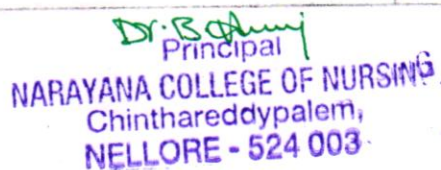 Dr. B
Principal
NARAYANA COLLEGE OF NURSING
Chinthareddypalem,
NELLORE - 524 003.